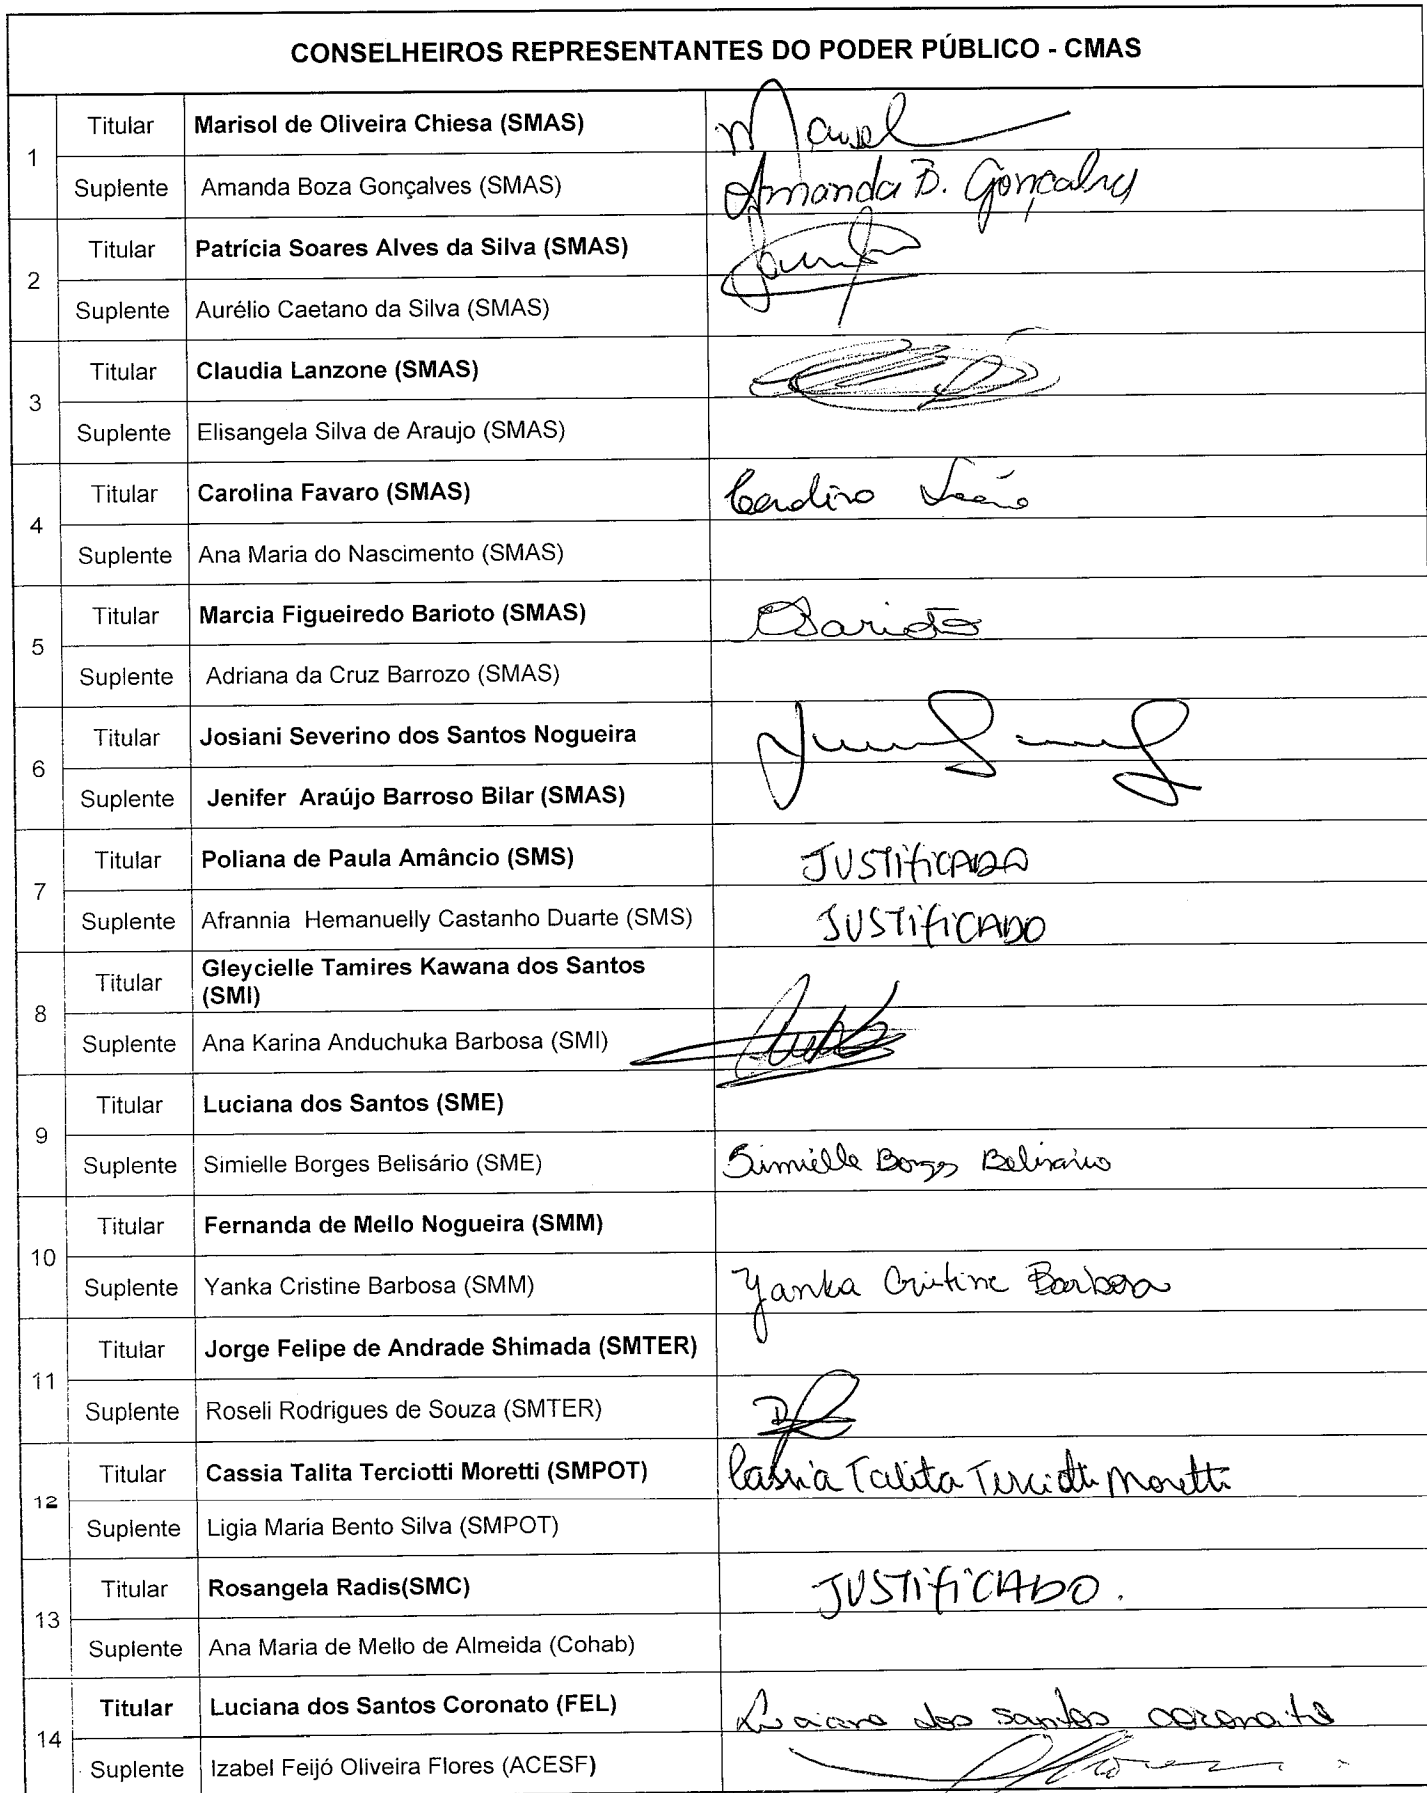 CONSELHEIROS REPRESENTANTES DO PODER PÚBLICO - CMAS
1 Titular Marisol de Oliveira Chiesa (SMAS)
Suplente Amanda Boza Gonçalves (SMAS) Amanda B. Gonçalves
2 Titular Patrícia Soares Alves da Silva (SMAS)
Suplente Aurélio Caetano da Silva (SMAS)
3 Titular Claudia Lanzone (SMAS)
Suplente Elisangela Silva de Araujo (SMAS)
4 Titular Carolina Favaro (SMAS)
Suplente Ana Maria do Nascimento (SMAS)
5 Titular Marcia Figueiredo Barioto (SMAS) Barioto
Suplente Adriana da Cruz Barrozo (SMAS)
6 Titular Josiani Severino dos Santos Nogueira
Suplente Jenifer Araújo Barroso Bilar (SMAS)
7 Titular Poliana de Paula Amâncio (SMS) JUSTIFICADA
Suplente Afrannia Hemanuelly Castanho Duarte (SMS) JUSTIFICADO
8 Titular Gleycielle Tamires Kawana dos Santos
(SMI)
Suplente Ana Karina Anduchuka Barbosa (SMI)
9 Titular Luciana dos Santos (SME)
Suplente Simielle Borges Belisário (SME) Simielle Borges Belisário
10 Titular Fernanda de Mello Nogueira (SMM)
Suplente Yanka Cristine Barbosa (SMM) Yanka Cristine Barbosa
11 Titular Jorge Felipe de Andrade Shimada (SMTER)
Suplente Roseli Rodrigues de Souza (SMTER)
12 Titular Cassia Talita Terciotti Moretti (SMPOT) Cassia Talita Terciotti Moretti
Suplente Ligia Maria Bento Silva (SMPOT)
13 Titular Rosangela Radis(SMC) JUSTIFICADO.
Suplente Ana Maria de Mello de Almeida (Cohab)
14 Titular Luciana dos Santos Coronato (FEL) Luciana dos Santos Coronato
Suplente Izabel Feijó Oliveira Flores (ACESF)